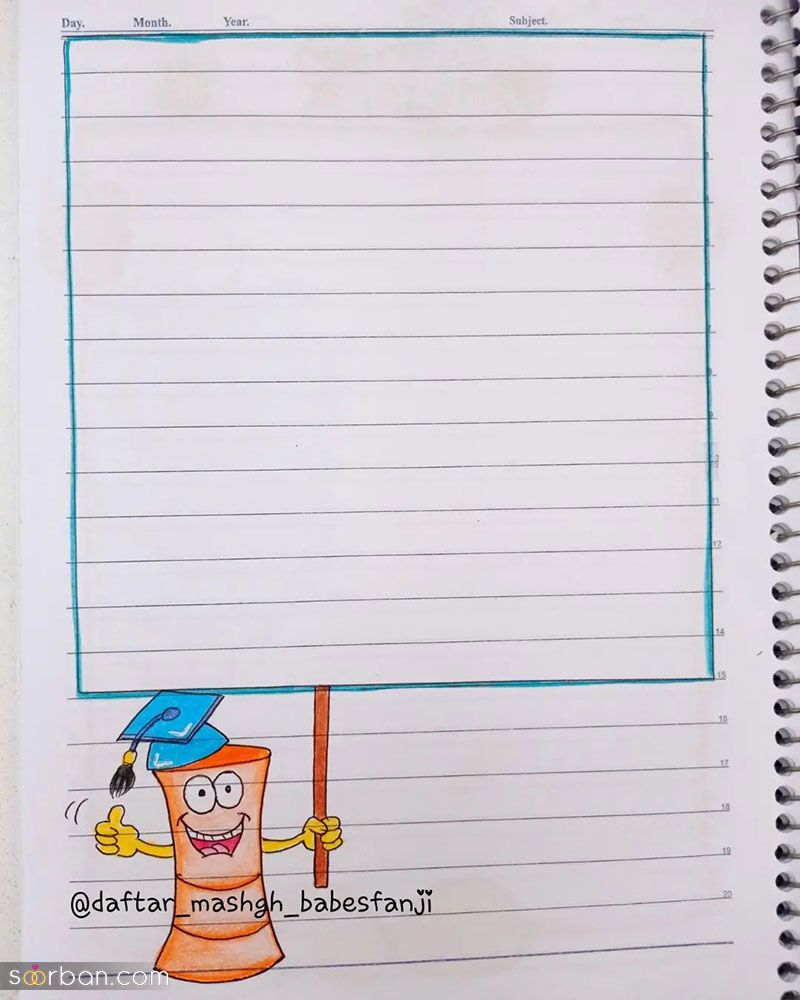 Day. Month. Year. Subject.
11
12
14
15
16
17
18
19
20
@daftar_mashgh_babesfanji
soorban.com